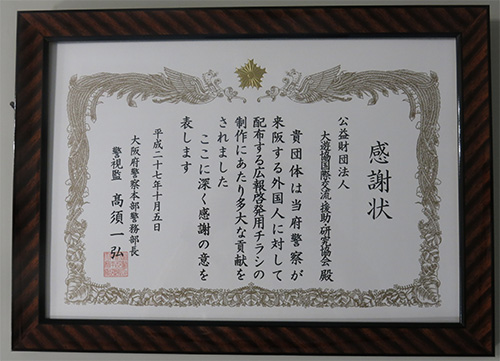 感謝状
公益財団法人
大遊協国際交流・援助・研究協会 殿
貴団体は当府警察が
来阪する外国人に対して
配布する広報啓発用チラシの
制作にあたり多大な貢献を
されました
ここに深く感謝の意を
表します
平成二十七年十月五日
大阪府警察本部警務部長
警視監 高須一弘